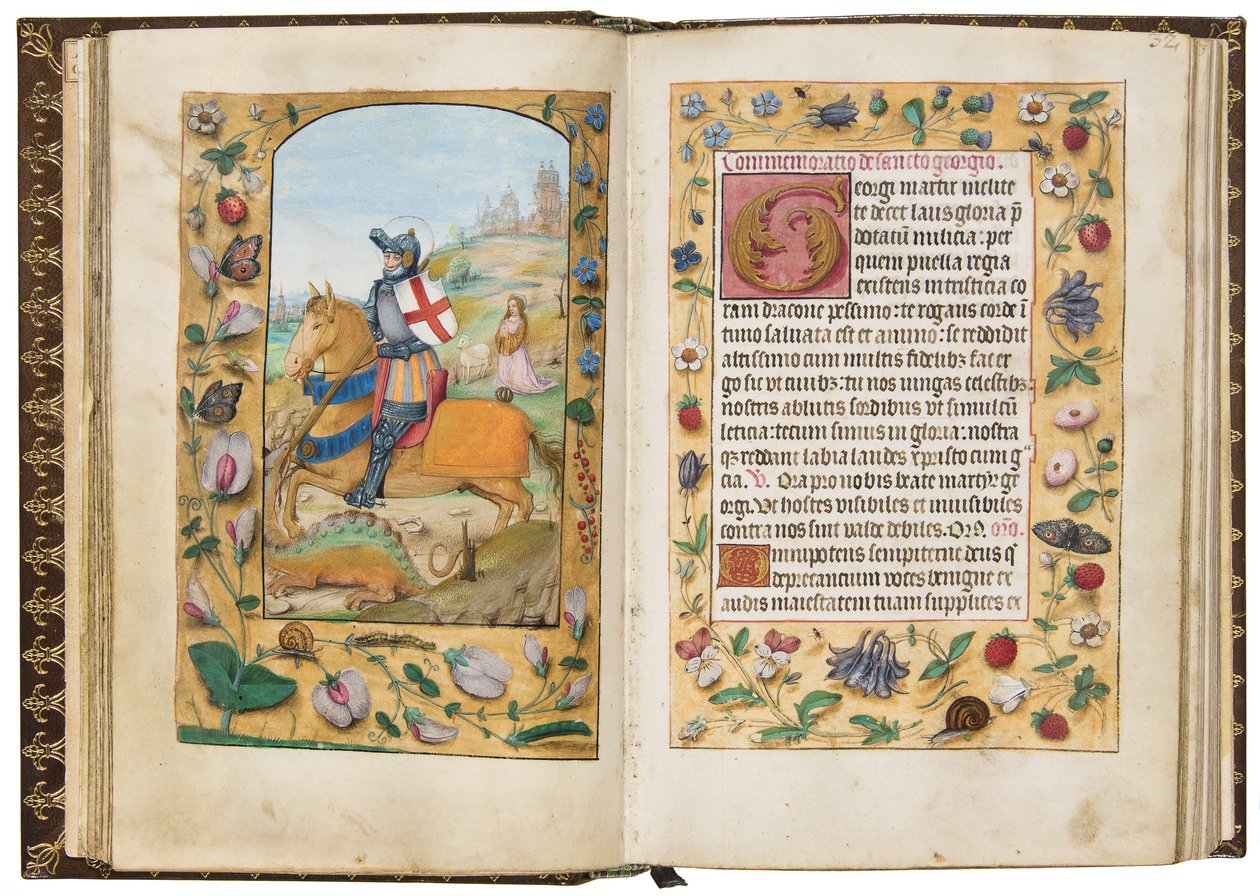 32
Commemoratio de sancto georgio.
Georgi martir inclite
te decet laus gloria p̄
dotatū milicia: per
quem puella regia
existens in tristicia co
ram dracone pessimo: te rogans corde ī
timo saluata est et animo: se reddidit
altissimo cum multis fidelibꝫ fac er
go sic vt ciuibꝫ: tu nos iungas celestibꝫ
nostris ablutis sordibus vt simul cū
leticia: tecum simus in gloria: nostra
qꝫ reddant labia laudes xp̄risto cum gͣ
cia. V. Ora pro nobis beate martyr ge
orgi. Vt hostes visibiles et inuisibiles
contra nos sint valde debiles. Orō.
Omnipotens sempiterne deus q̄
deprecancium voces benigne ex
audis maiestatem tuam supplices ex